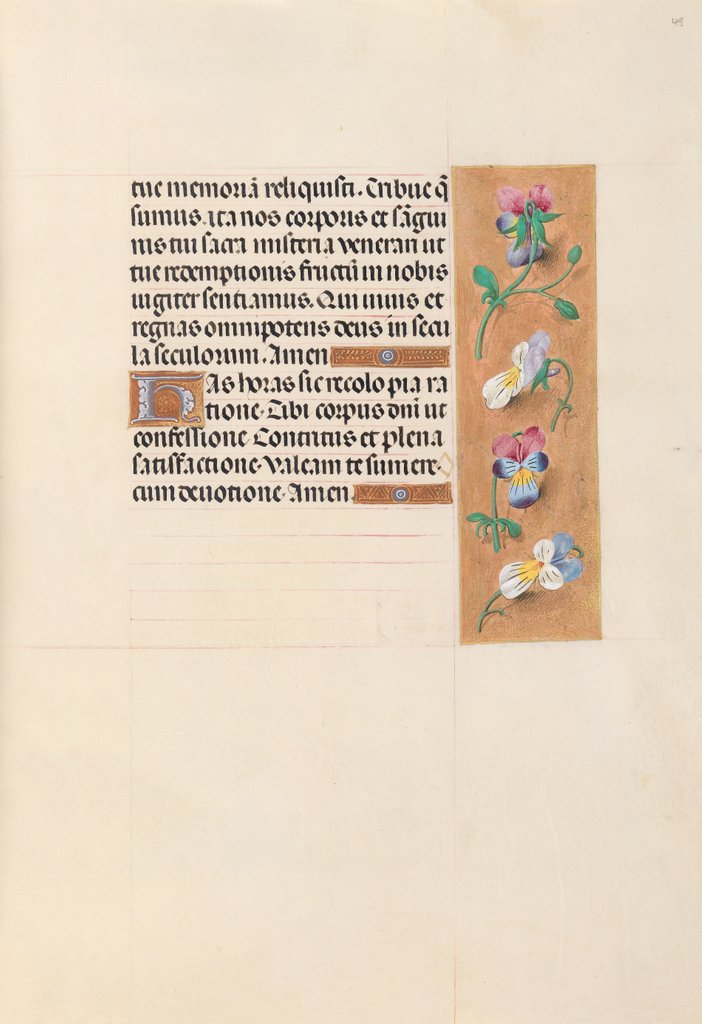 48
tue memoriā reliquisti. Tribue q̄
sumus. ita nos corporis et sāgui
nis tui sacra misteria venerari ut
tue redemptionis fructū in nobis
iugiter sentiamus. Qui uiuis et
regnas omnipotens deus in secu
la seculorum. Amen
Has horas sic recolo pia ra
tione. Tibi corpus dn̄i ut
confessione. Contritus et plena
satisfactione. Valeam te sumere.
cum deuotione. Amen.